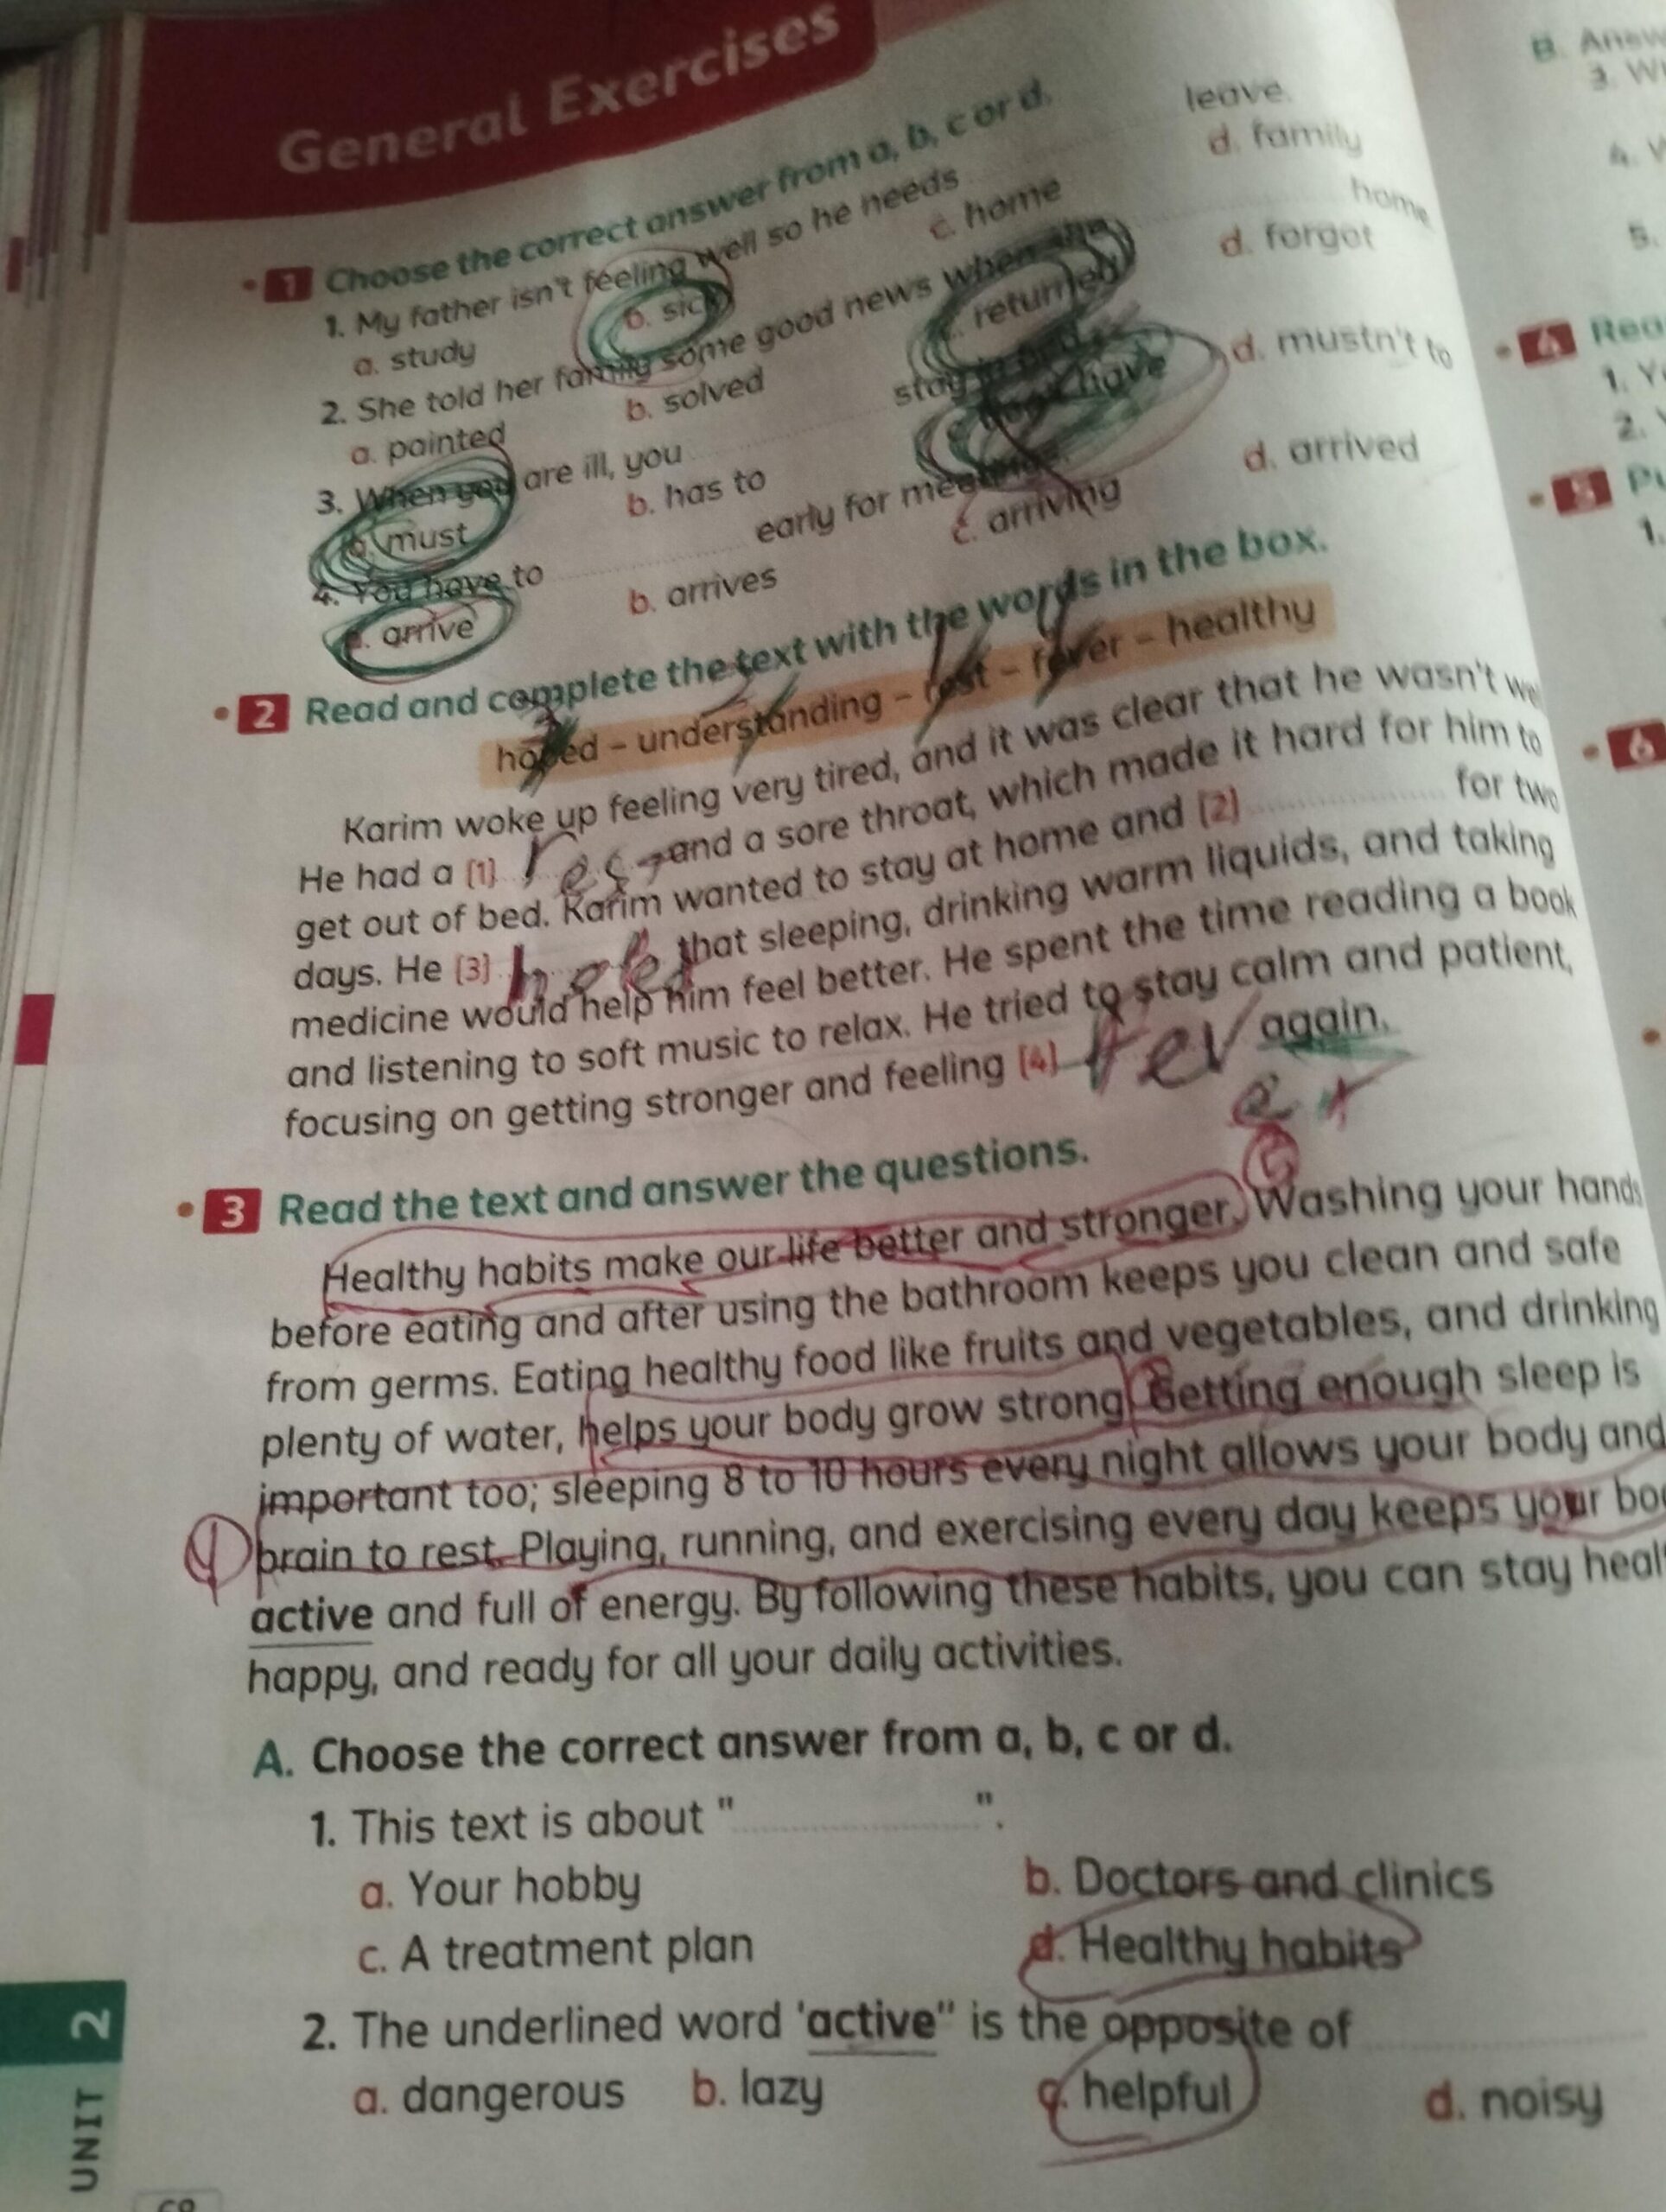 General Exercises
1 Choose the correct answer from a, b, c or d.
1. My father isn't feeling well so he needs leave.
a. study b. sick c. home d. family
2. She told her family some good news when she home
a. painted b. solved c. returned d. forgot
3. When you are ill, you stay in bed.
a. must b. has to have d. mustn't to
4. You have to early for meetings.
a. arrive b. arrives c. arriving d. arrived
2 Read and complete the text with the words in the box.
hoped – understanding – rest – fever – healthy
Karim woke up feeling very tired, and it was clear that he wasn't
He had a (1) res and a sore throat, which made it hard for him to
get out of bed. Karim wanted to stay at home and (2) for two
days. He (3) that sleeping, drinking warm liquids, and taking
medicine would help him feel better. He spent the time reading a book
and listening to soft music to relax. He tried to stay calm and patient,
focusing on getting stronger and feeling (4) fev again.
3 Read the text and answer the questions.
Healthy habits make our life better and stronger. Washing your hands
before eating and after using the bathroom keeps you clean and safe
from germs. Eating healthy food like fruits and vegetables, and drinking
plenty of water, helps your body grow strong. Getting enough sleep is
important too; sleeping 8 to 10 hours every night allows your body and
brain to rest. Playing, running, and exercising every day keeps your
active and full of energy. By following these habits, you can stay
happy, and ready for all your daily activities.
A. Choose the correct answer from a, b, c or d.
1. This text is about " ".
a. Your hobby b. Doctors and clinics
c. A treatment plan d. Healthy habits
2. The underlined word 'active" is the opposite of
a. dangerous b. lazy c. helpful d. noisy
UNIT 2
B.
3.
4.
5.
4
1.
2.
5
1.
6